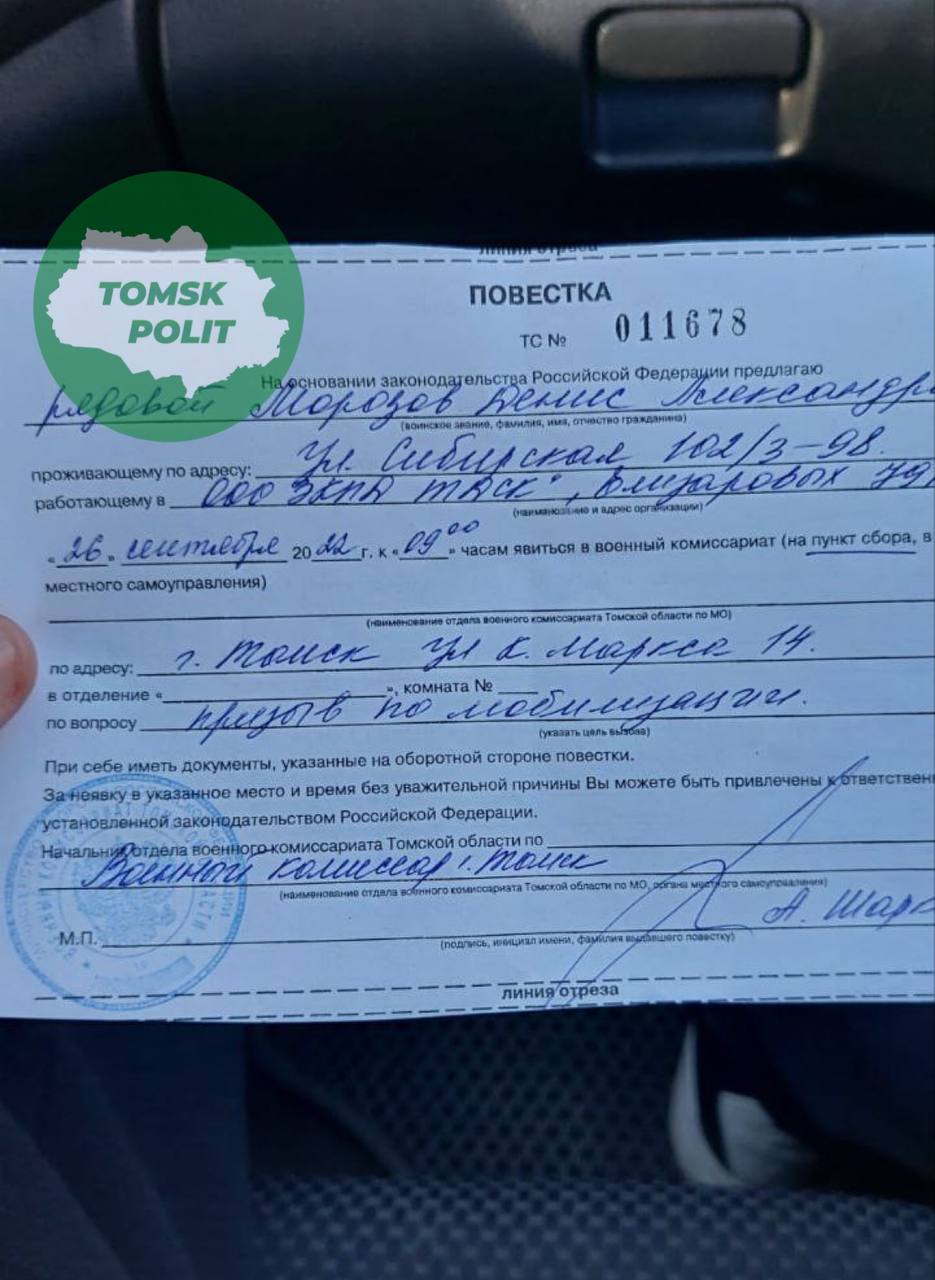 TOMSK
POLIT
линия отреза
ПОВЕСТКА
ТС № 011678
На основании законодательства Российской Федерации предлагаю
рядовой Морозов Денис Александр
(воинское звание, фамилия, имя, отчество гражданина)
проживающему по адресу: Ул. Сибирская 102/3-98.
работающему в ООО
(наименование и адрес организации)
«26» сентября 2022 г. к «09 00» часам явиться в военный комиссариат (на пункт сбора, в
местного самоуправления)
(наименование отдела военного комиссариата Томской области по МО)
по адресу: г. Томск ул К. Маркса 14.
в отделение « », комната №
по вопросу призыв по мобилизации.
(указать цель вызова)
При себе иметь документы, указанные на оборотной стороне повестки.
За неявку в указанное место и время без уважительной причины Вы можете быть привлечены к ответствен
установленной законодательством Российской Федерации.
Начальник отдела военного комиссариата Томской области по
Военный комиссар г. Томск
(наименование отдела военного комиссариата Томской области по МО, органа местного самоуправления)
А. Шар
М.П.
(подпись, инициал имени, фамилия выдавшего повестку)
линия отреза